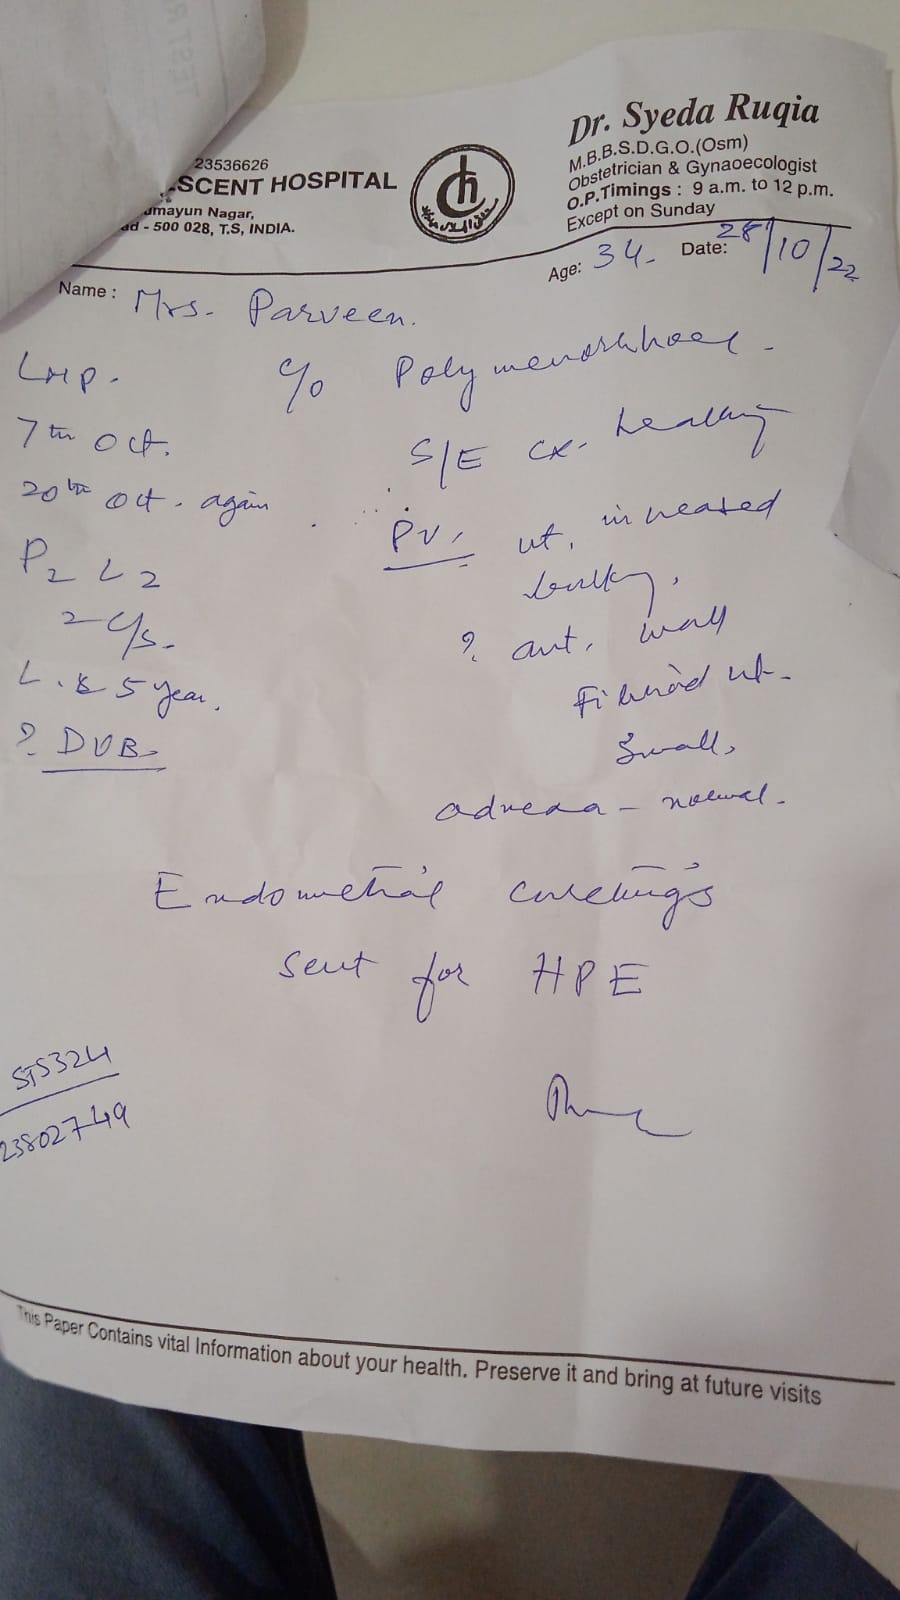 23536626
SCENT HOSPITAL
mayun Nagar,
ad - 500 028, T.S, INDIA.
Dr. Syeda Ruqia
M.B.B.S.D.G.O.(Osm)
Obstetrician & Gynaoecologist
O.P.Timings : 9 a.m. to 12 p.m.
Except on Sunday
Age: 34. Date: 28/10/22
Name : Mrs. Parveen.
LMP.
7th Oct.
20th Oct. again
P2 L2
2 C/S.
L. 5 year.
? DUB
c/o Polymenorrhoea
S/E cx. healthy
PV, ut. increased
bulky,
? ant. wall
Fibroid ut.
Small,
adnexa - normal.
Endometrial curettings
sent for HPE
STS324
23802749
This Paper Contains vital Information about your health. Preserve it and bring at future visits